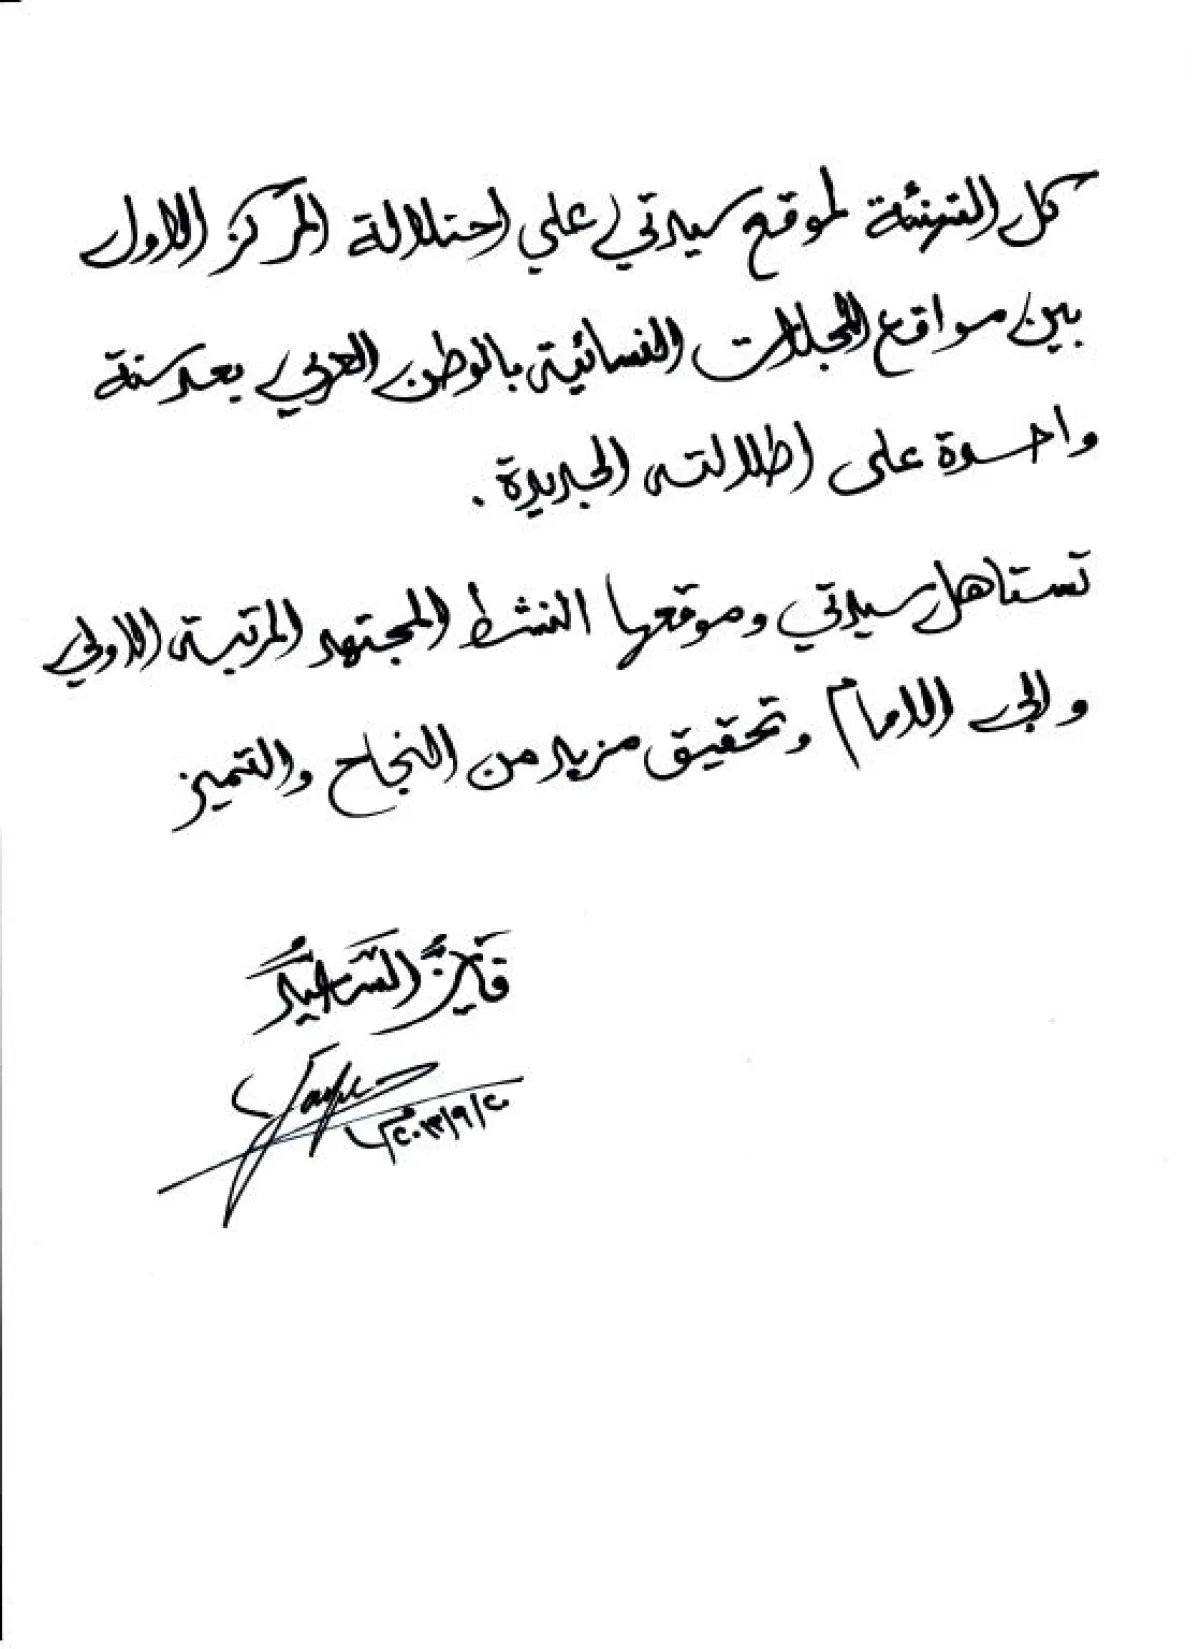 كل التهنئة لموقع سيدتي على احتلالة المركز الاول
بين مواقع المجلات النسائية بالوطن العربي بعد سنة
واحدة على اطلالته الجديدة .
تستاهل سيدتي وموقعها النشط المجتهد المرتبة الاولى
والى الامام وتحقيق مزيد من النجاح والتميز
فايز السعيد
٢٠١٣/٩/٢٠م